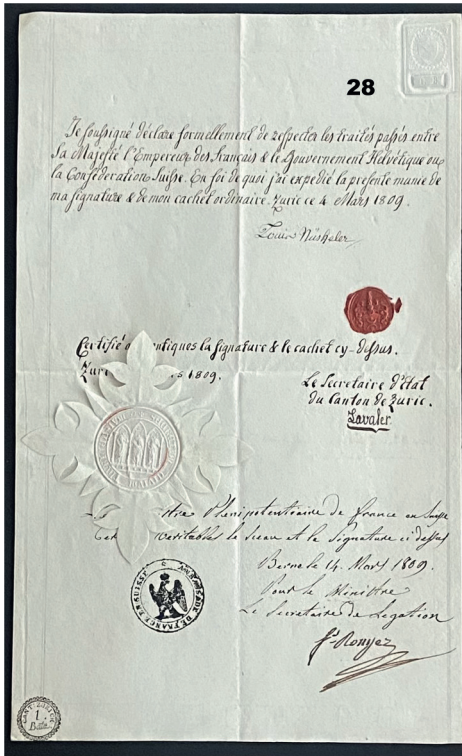 28
Je soussigné déclare formellement de respecter les traités passés entre
Sa Majesté l'Empereur des Français & le Gouvernement Helvétique ou
la Confédération Suisse. En foi de quoi j'ai expedié la présente munie de
ma signature & de mon cachet ordinaire. Zuric ce 4 Mars 1809.
Louis Nüsheler
Certifié authentiques la signature & le cachet cy-dessus.
1809.
Le Secretaire d'Etat
du Canton de Zuric.
Lavater
Plenipotentiaire de france en Suisse
veritables le sceau et la Signature ci dessus
Berne le 14. Mars 1809.
Pour le Ministre
Le Secretaire de Légation
AMBASSADE DE FRANCE EN SUISSE
CANT. ZÜRICH
1.
Batz.